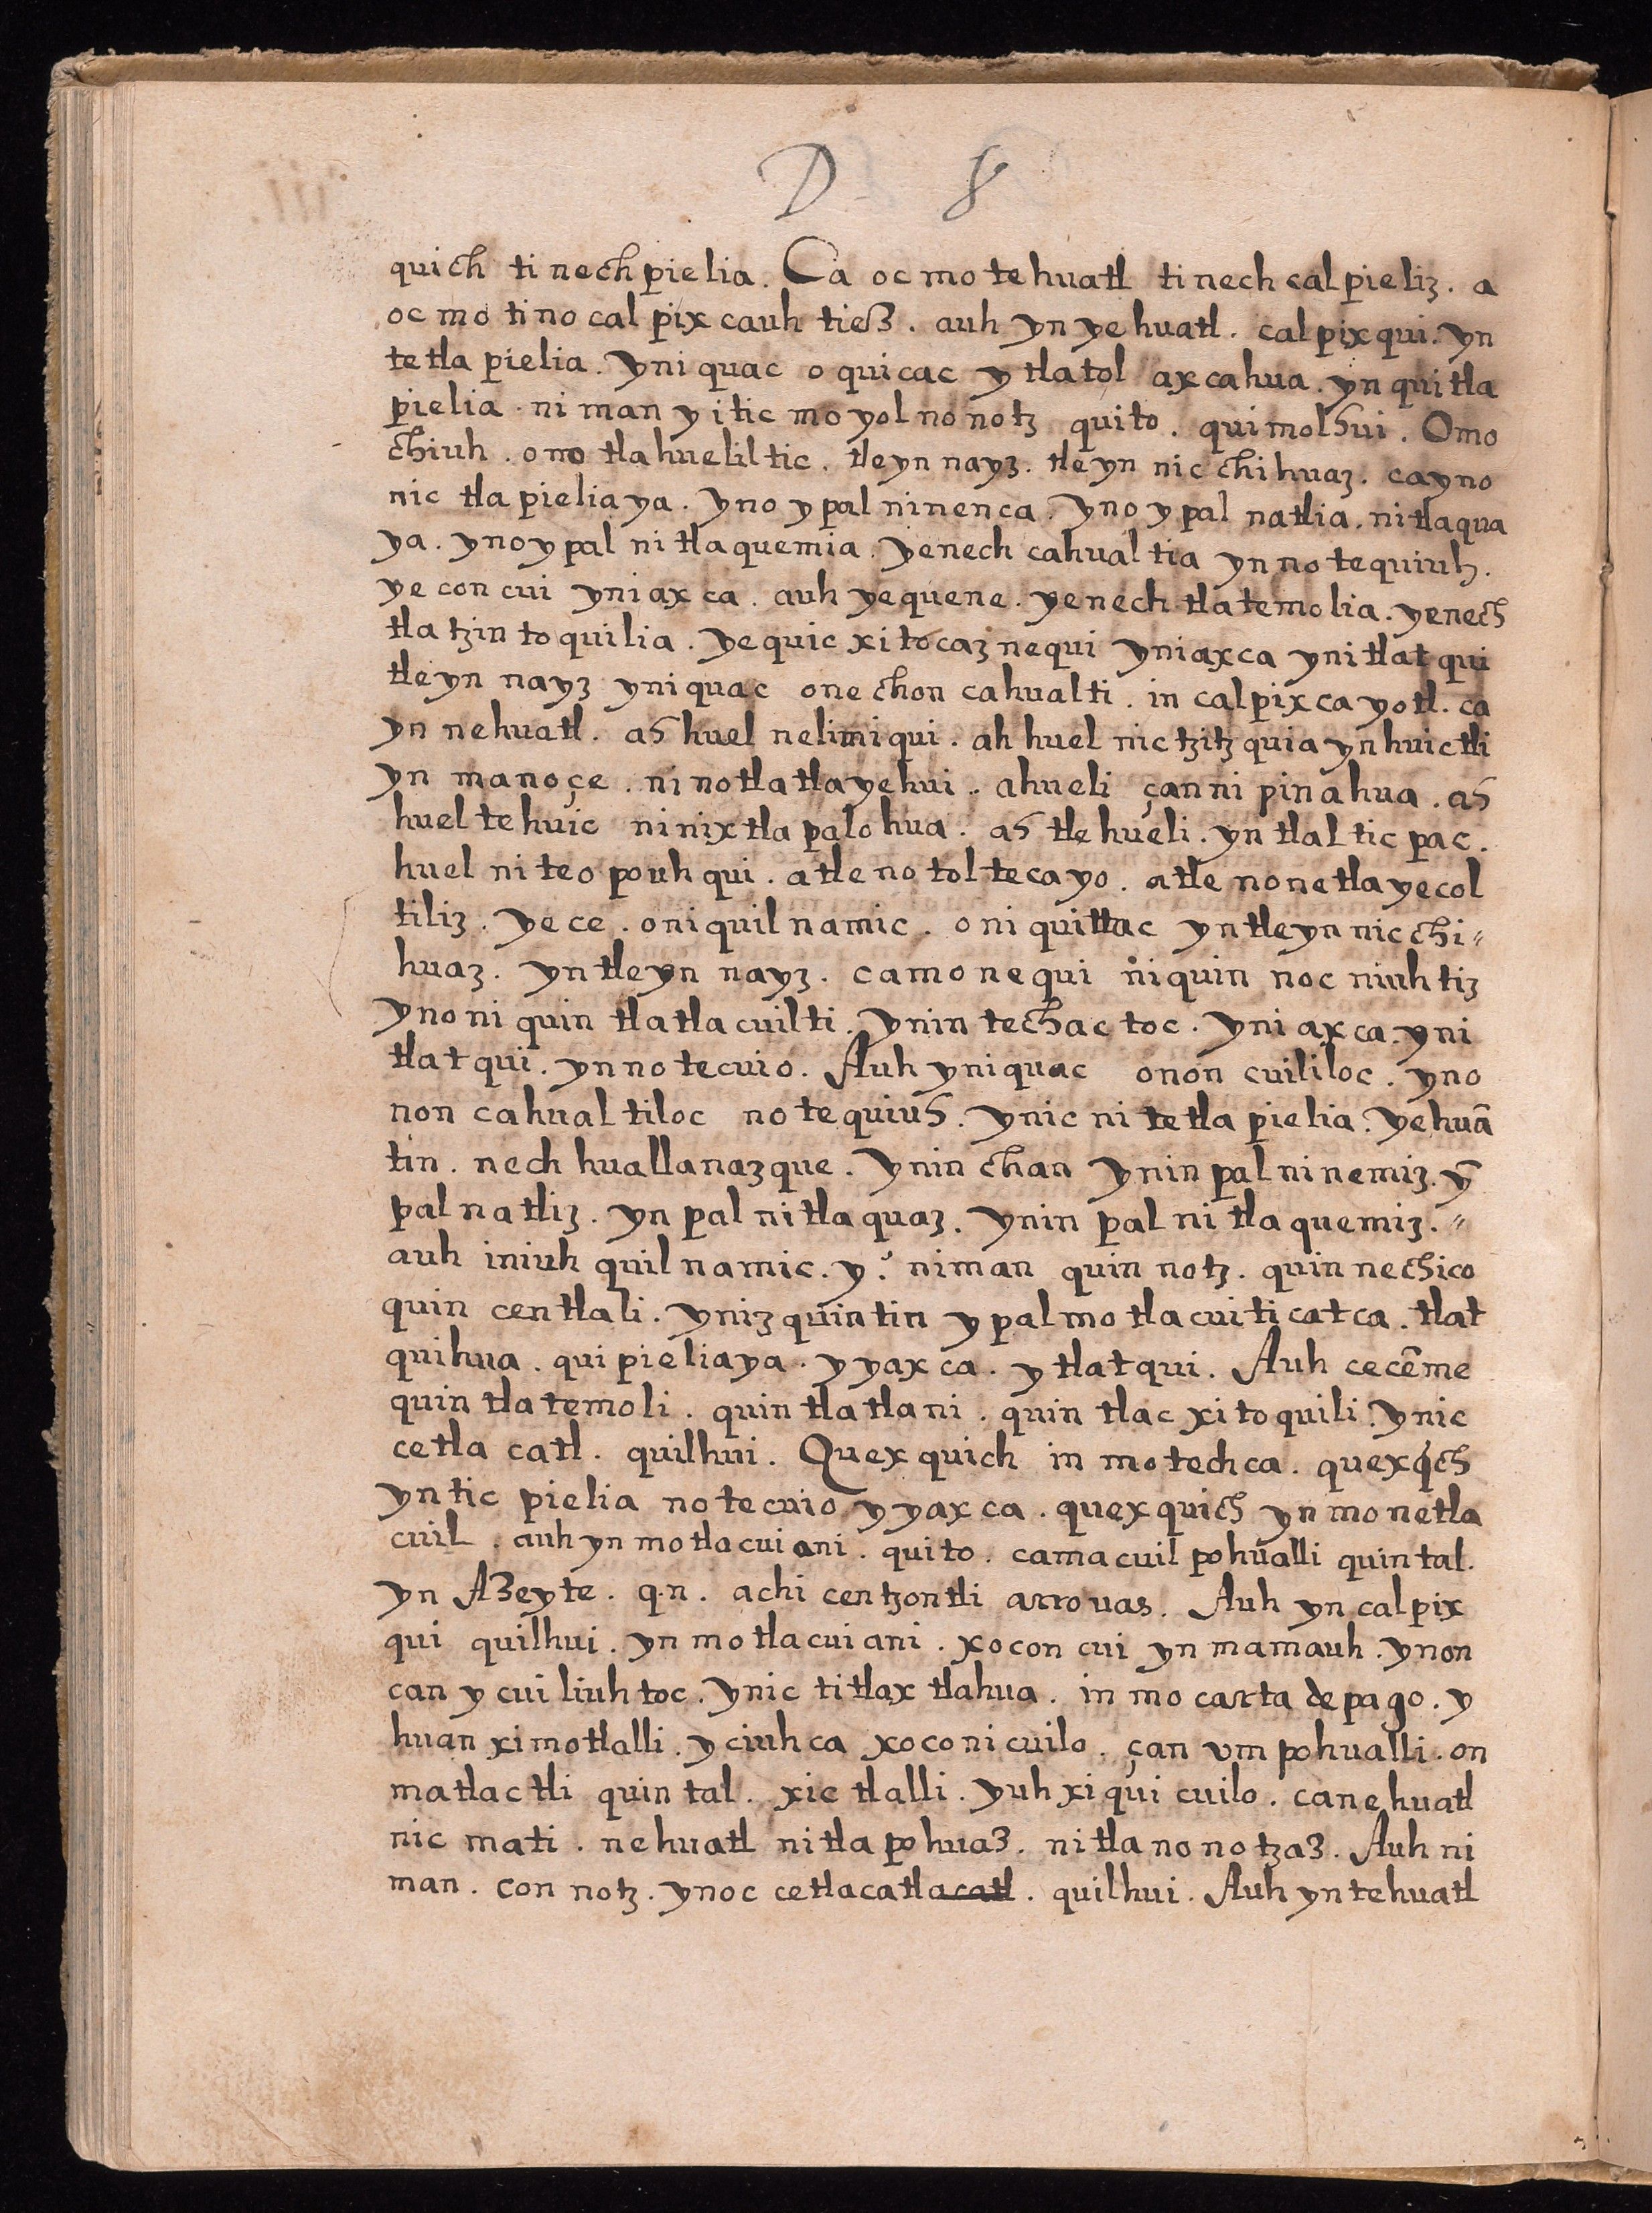 D 8
quich ti nech pielia. Ca oc mo te huatl ti nech cal pieliz. a
oc mo ti no cal pix cauh tieß. auh yn ye huatl. cal pix qui. yn
te tla pielia. yni quac o qui cac y tla tol ax ca hua. yn qui tla
pielia. ni man y itic mo yol no notz qui to. qui mol hui. Omo
chiuh. omo tla hueliltic. tle yn nayz. tle yn nic chi huaz. ca yno
nic tla pielia ya. yno y pal ninen ca. yno y pal natlia. ni tla qua
ya. yno y pal ni tla quemia. ye nech cahual tia yn no te quiuh.
ye con cui yni ax ca. auh ye quene. ye nech tla temo lia. ye nech
tla tzin to qui lia. ye quic xi to caz nequi yni ax ca yni tlat qui
tle yn nayz yni quac one chon cahual ti. in cal pix ca yotl. ca
yn ne huatl. ah huel nelimi qui. ah huel nic tzitz quia yn huic tli
yn manoçe. ni no tla tla ye hui. ahueli çan ni pin a hua. ah
huel te huic ni nix tla palo hua. ah tle hueli. yn tlal tic pac.
huel ni teo pouh qui. atle no tol te ca yo. atle no ne tla ye col
tiliz. ye ce. oni quil namic. oni quittac yn tle yn nic chi=
huaz. yn tle yn nayz. ca mo nequi ni quin noc niuh tiz
yno ni quin tla tla cuil ti. ynin tech ac toc. yni ax ca. yni
tlat qui. yn no tecuio. Auh yni quac onon cuililoc. yno
non cahual tiloc no te quiuh. ynic ni te tla pielia. ye huā
tin. nech huallanaz que. ynin chan ynin pal ni nemiz. ȳ
pal natliz. yn pal ni tla quaz. ynin pal ni tla quemiz. =
auh iniuh quil namic. y. niman quin notz. quin nechico
quin cen tlali. yniz quin tin y pal mo tla cui ti cat ca. tlat
qui hua. qui pielia ya. y yax ca. y tlat qui. Auh cecēme
quin tla temo li. quin tla tla ni. quin tlac xi to quili. ynic
ce tla catl. quilhui. Quex quich in mo tech ca. quexqch
yn tic pielia no tecuio y yax ca. quex quich yn mo ne tla
cuil. auh yn mo tla cui ani. qui to. ca ma cuil pohualli quin tal.
yn A3eyte. q.n. achi cen tzon tli arrouas. Auh yn cal pix
qui quilhui. yn mo tla cui ani. xo con cui yn mamauh. ynon
can y cui liuh toc. ynic ti tlax tlahua. in mo carta de pago. y
huan xi mo tlalli. y ciuh ca xo co ni cuilo. çan vm pohualli. on
matlac tli quin tal. xic tlalli. yuh xi qui cuilo. ca ne huatl
nic mati. ne huatl ni tla po hua3. ni tla no no tza3. Auh ni
man. con notz. yn oc ce tlacatlacatl. quilhui. Auh yn te huatl